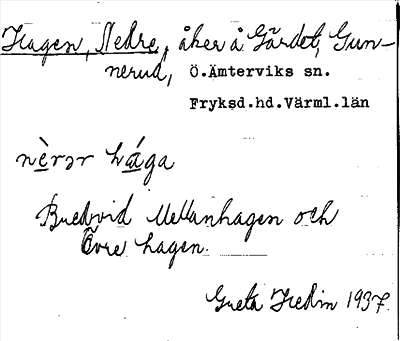 Hagen, Nedre, åker å Gärdet, Gun-
nerud, Ö.Ämterviks sn.
Fryksd.hd.Värml.län
nèrər hága
Bredvid Mellanhagen och
Övre hagen.
Greta Hedin 1937.